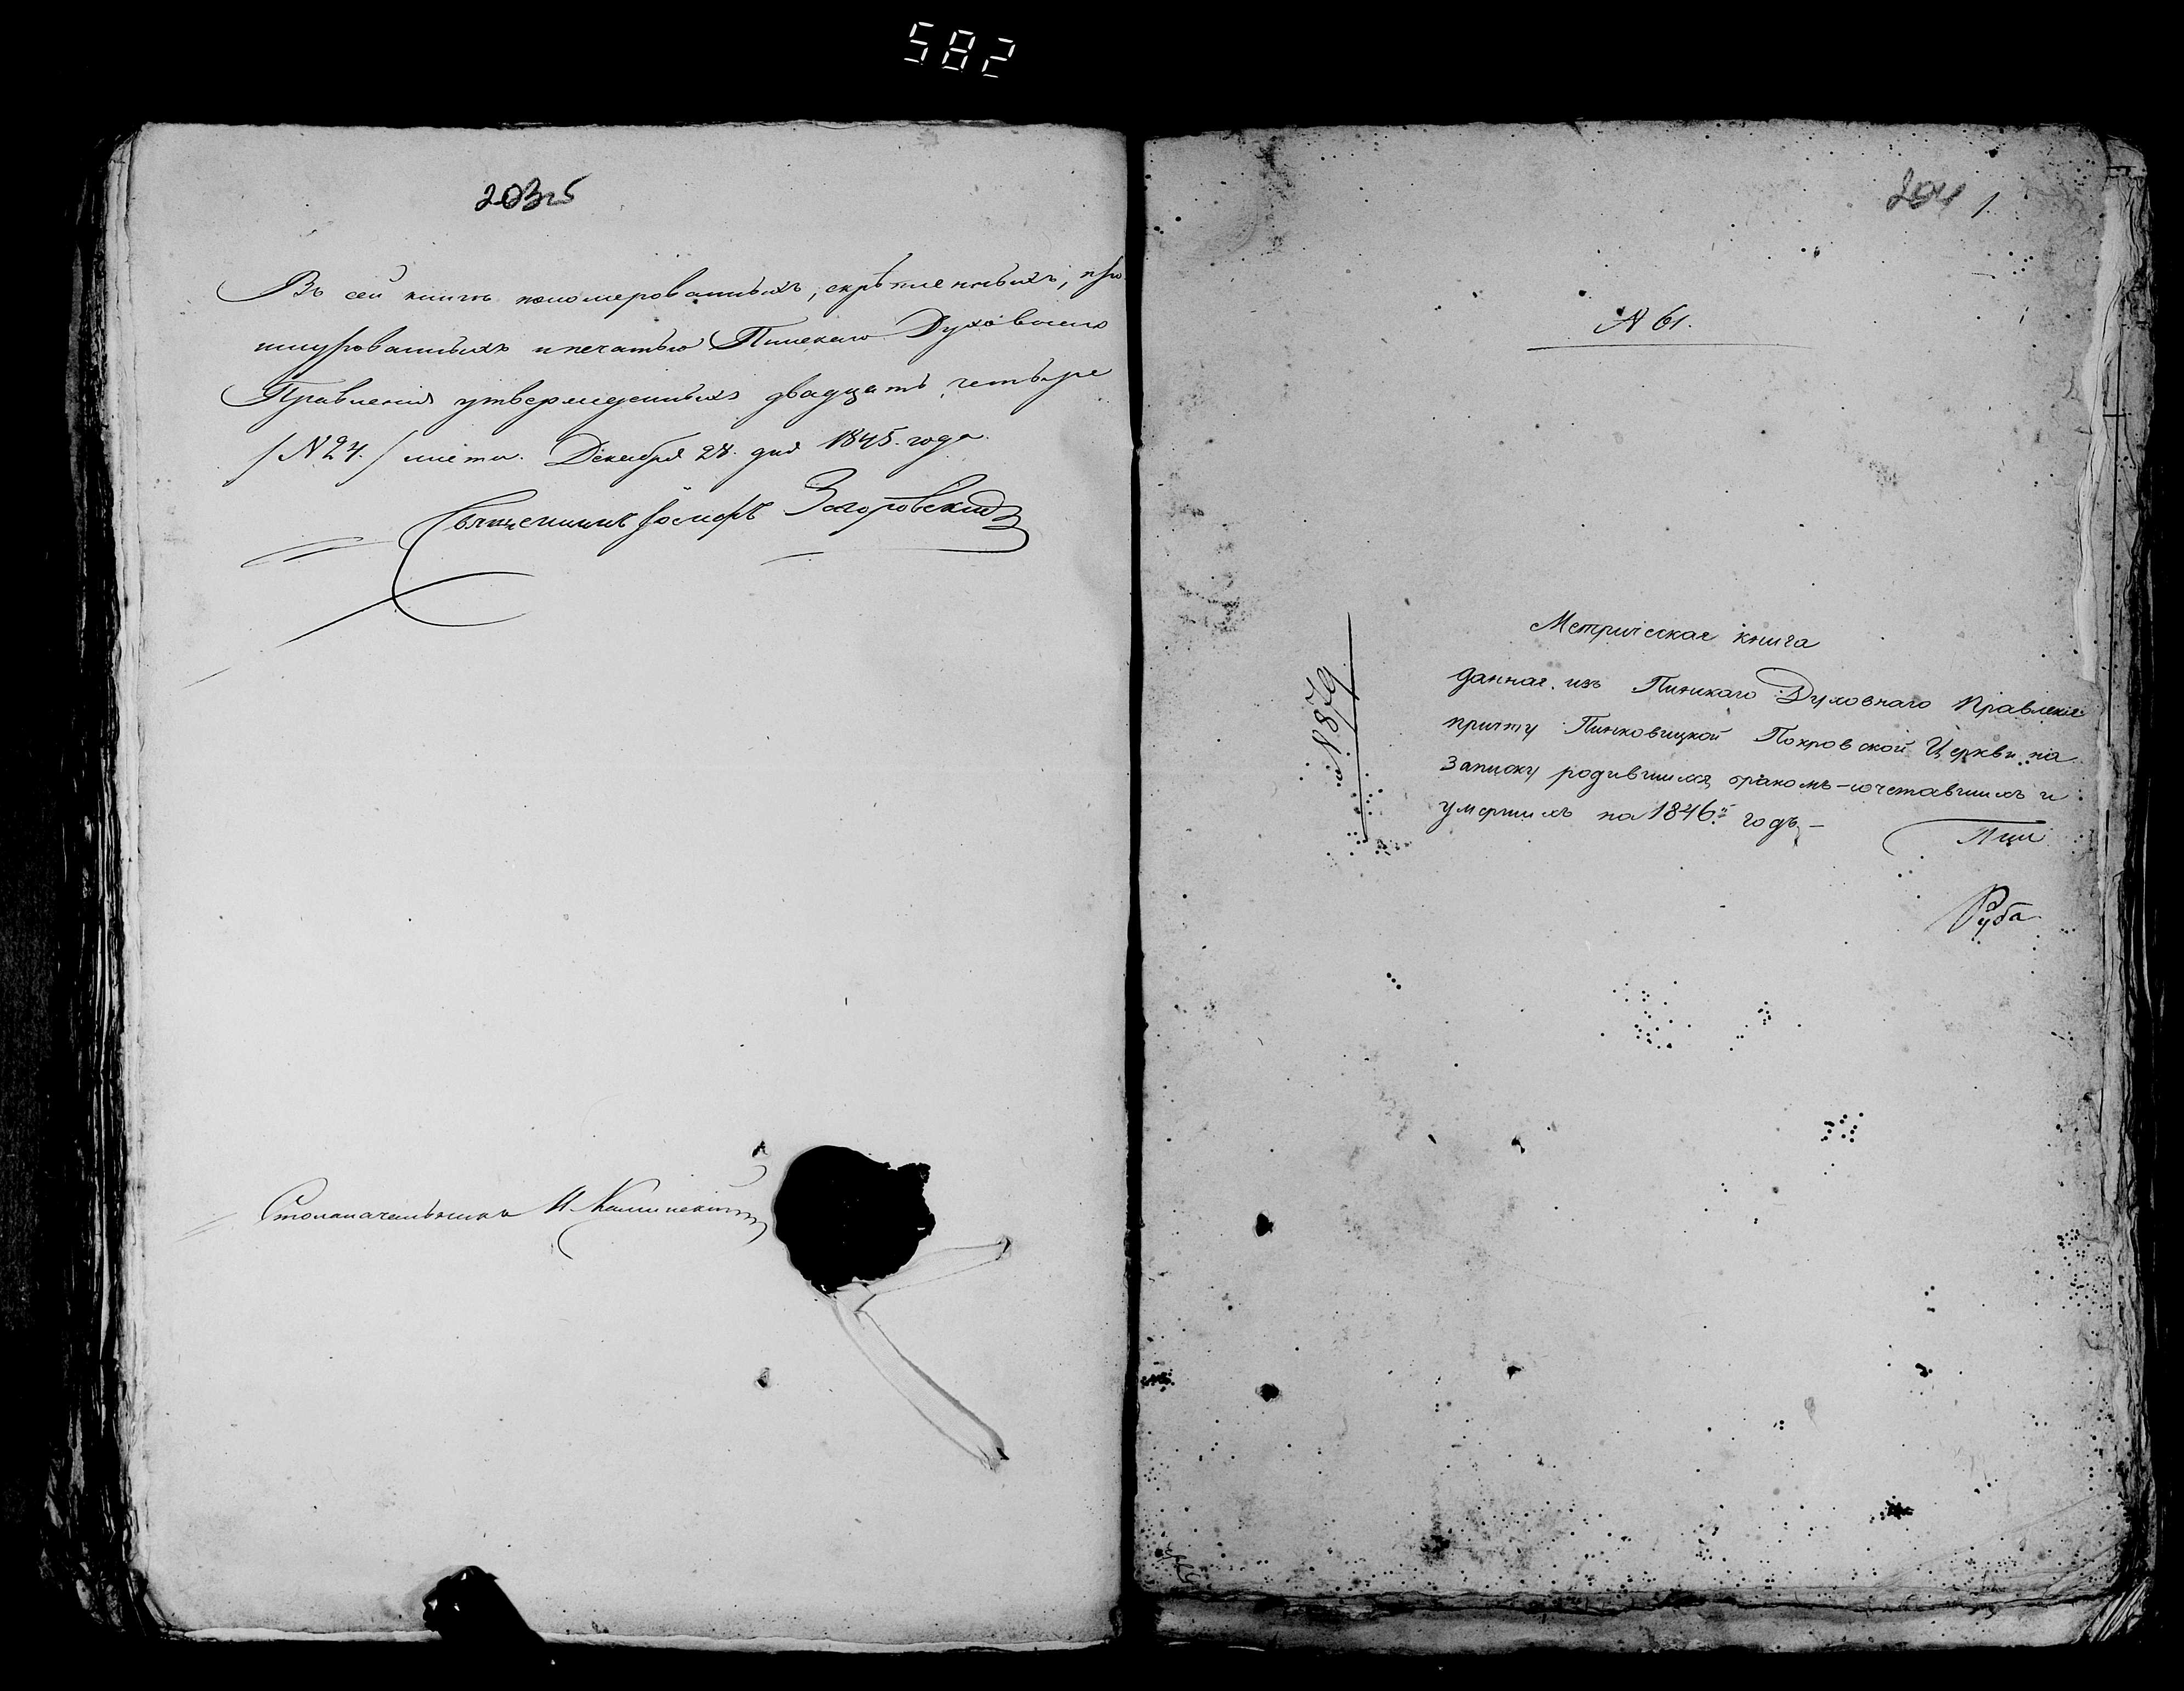 582
203 об
Въ сей книгѣ нономерованныхъ, скрѣпленныхъ, про
шнурованныхъ и печатью Пинскаго Духовнаго
Правленія утвержденныхъ двадцать четыре
/N 24./ листа. Декабря 28. дня 1845. года.
Священникъ Іосифъ Загоровскій
Столоначальникъ И.
204 1.
N 61.
N. 879
Метрическая книга
данная изъ Пинскаго Духовнаго Правленія
причту Пинковицкой Покровской Церкви на
записку родившихся, бракомъ-сочетавшихся и
умершихъ на 1846й годъ. –